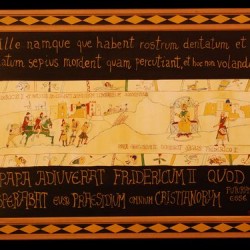 Ille namque que habent rostrum dentatum et
atum sepius mordent quam percutiant, et hic non voland
PAPA ADIUVERAT FRIDERICUM II QUOD
SPERABAT EUM PRAESIDIUM OMNIUM CRISTIANORUM
FUTURUM
ESSE